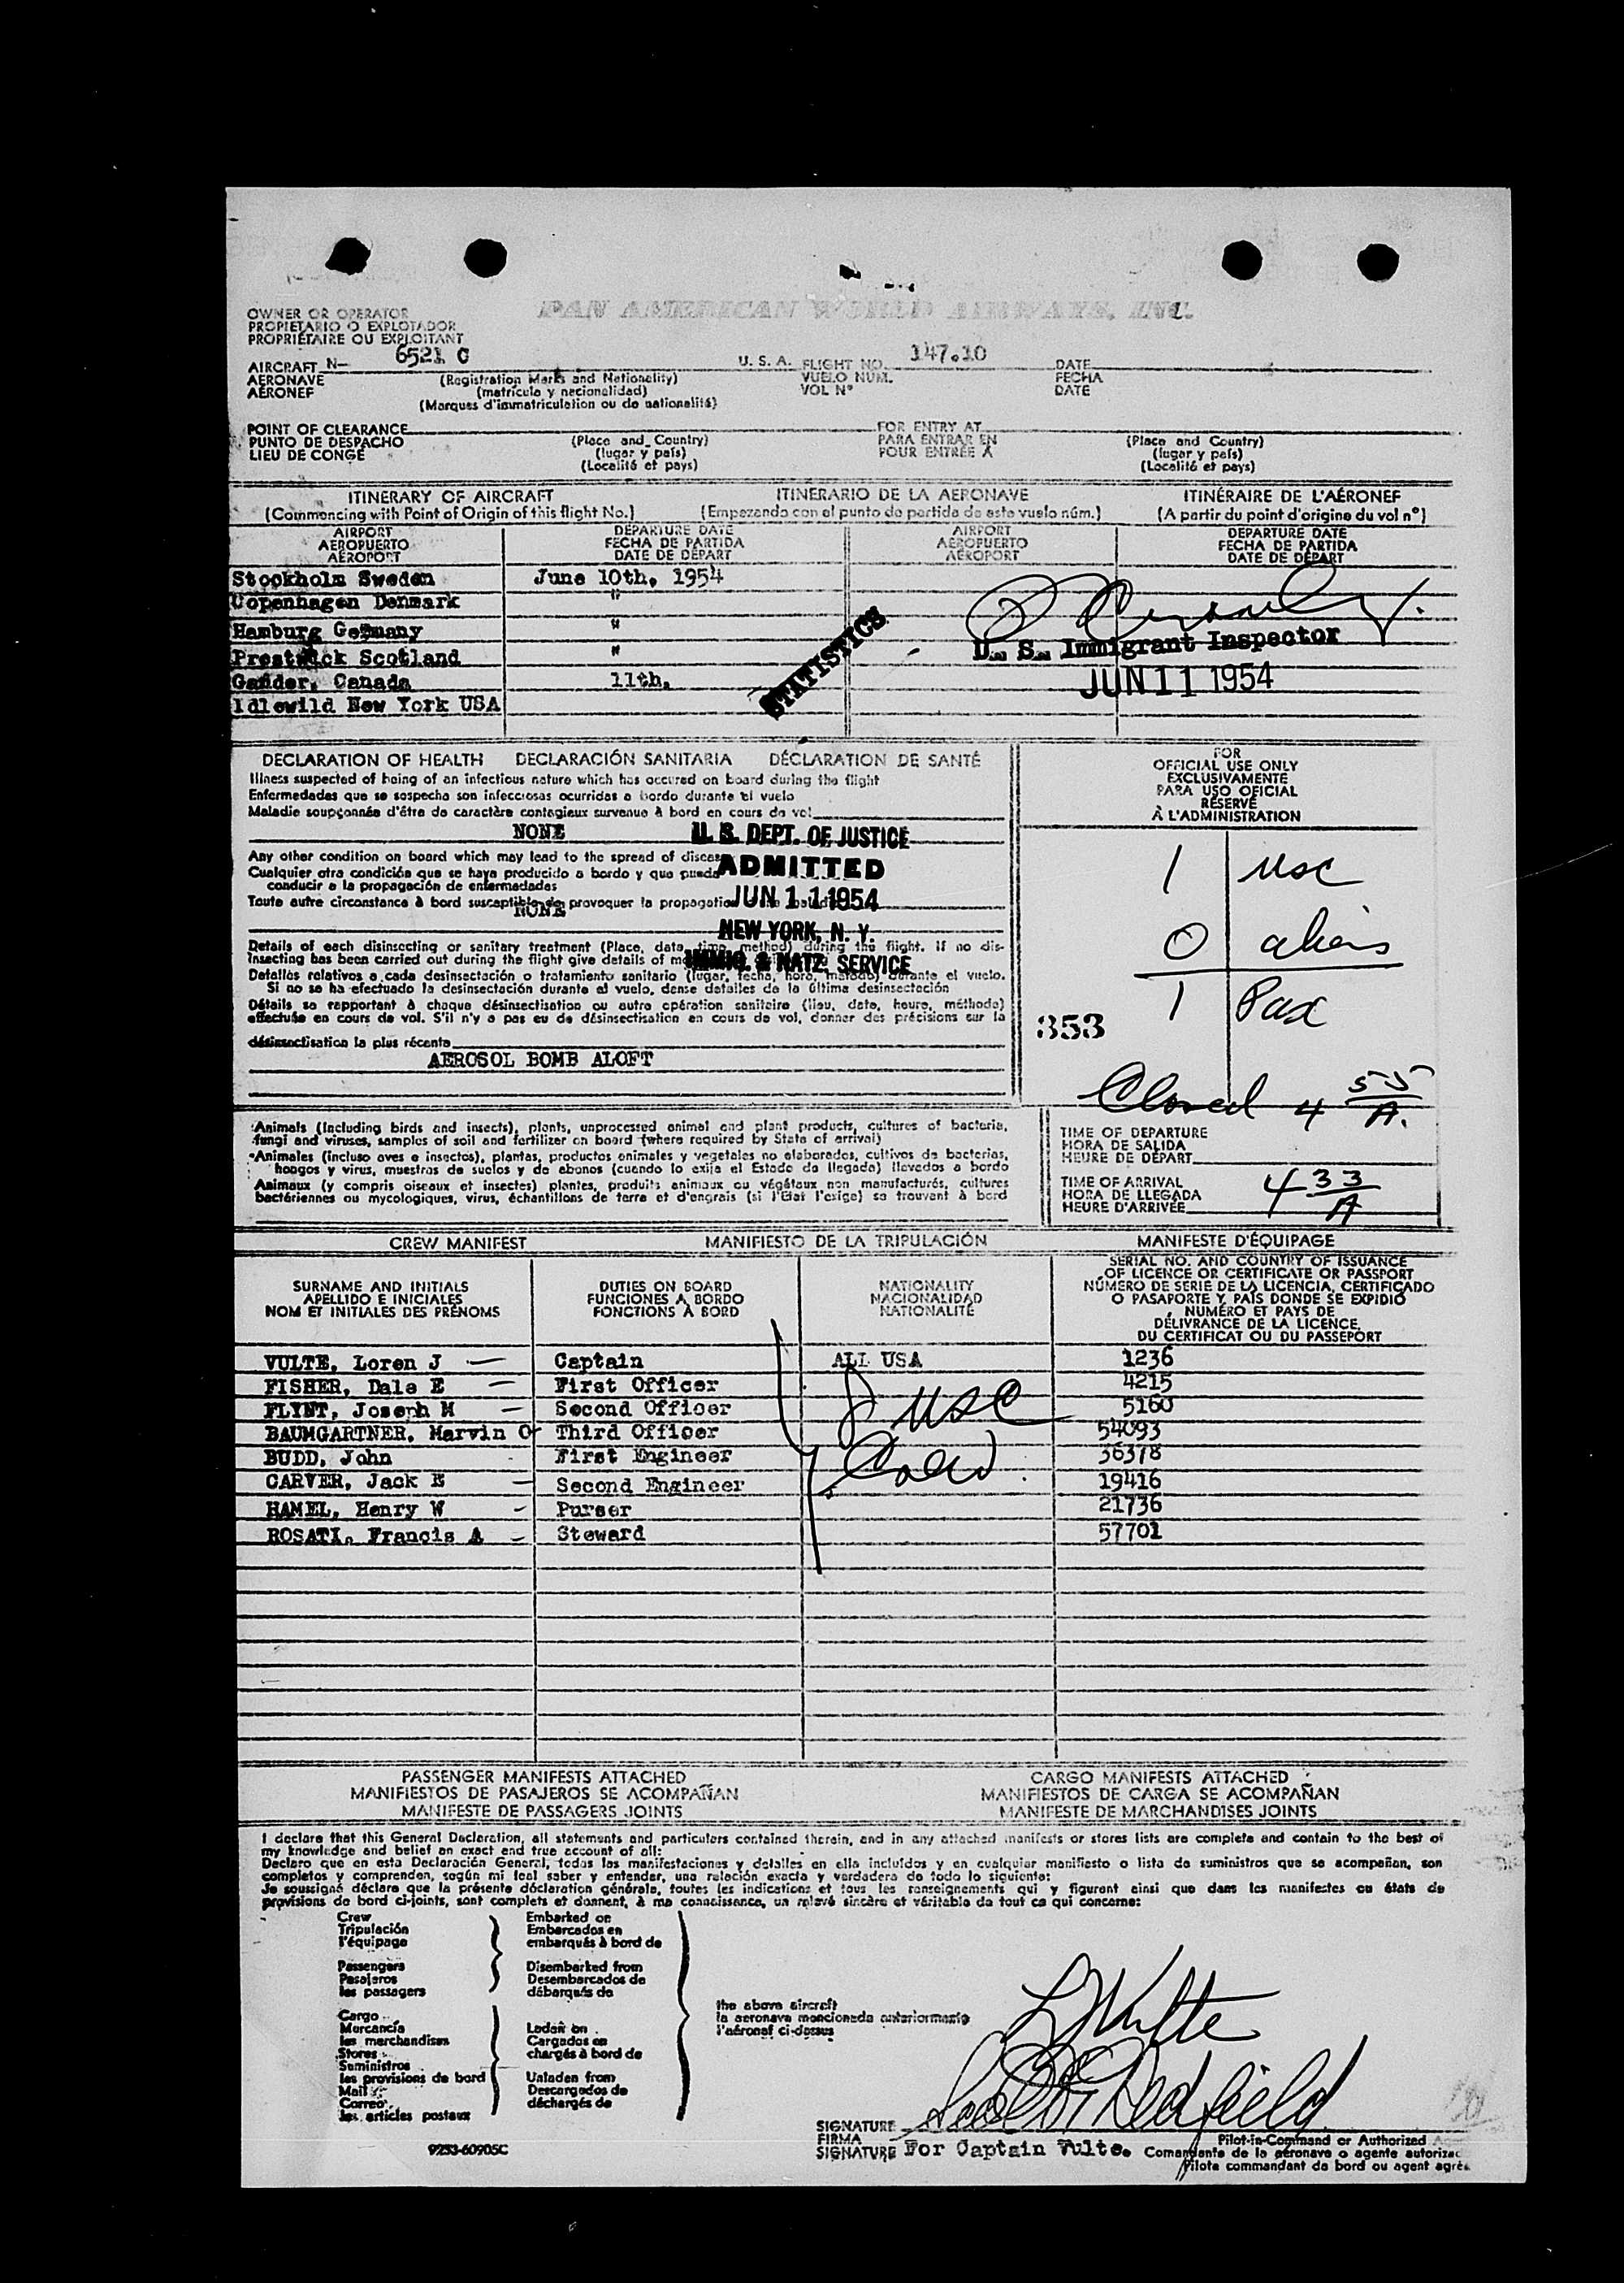 PAN AMERICAN WORLD AIRWAYS, INC.
OWNER OR OPERATOR
PROPIETARIO O EXPLOTADOR
PROPRIÉTAIRE OU EXPLOITANT
AIRCRAFT N- 6521 C U. S. A. FLIGHT NO. 147.10 DATE
AERONAVE (Registration Marks and Nationality) VUELO NUM. FECHA
AÉRONEF (matrícula y nacionalidad) VOL N° DATE
(Marques d'immatriculation ou de nationalité)
POINT OF CLEARANCE FOR ENTRY AT
PUNTO DE DESPACHO (Place and Country) PARA ENTRAR EN (Place and Country)
LIEU DE CONGÉ (lugar y país) POUR ENTRÉE À (lugar y país)
(Localité et pays) (Localité et pays)
ITINERARY OF AIRCRAFT ITINERARIO DE LA AERONAVE ITINÉRAIRE DE L'AÉRONEF
(Commencing with Point of Origin of this flight No.) (Empezando con el punto de partida de este vuelo núm.) (A partir du point d'origine du vol n°)
AIRPORT DEPARTURE DATE AIRPORT DEPARTURE DATE
AEROPUERTO FECHA DE PARTIDA AEROPUERTO FECHA DE PARTIDA
AÉROPORT DATE DE DÉPART AÉROPORT DATE DE DÉPART
Stockholm Sweden June 10th, 1954
Copenhagen Denmark "
Hamburg Germany "
Prestwick Scotland "
Gander, Canada 11th.
Idlewild New York USA
STATISTICS
U. S. Immigrant Inspector
JUN 11 1954
DECLARATION OF HEALTH DECLARACIÓN SANITARIA DÉCLARATION DE SANTÉ
Illness suspected of being of an infectious nature which has occured on board during the flight
Enfermedades que se sospecha son infecciosas ocurridas a bordo durante el vuelo
Maladie soupçonnée d'être de caractère contagieux survenue à bord en cours de vol
NONE
U. S. DEPT. OF JUSTICE
ADMITTED
JUN 11 1954
NEW YORK, N. Y.
IMMIG. & NATZ. SERVICE
Any other condition on board which may lead to the spread of disease
Cualquier otra condición que se haya producido a bordo y que pueda
conducir a la propagación de enfermedades
Toute autre circonstance à bord susceptible de provoquer la propagation
NONE
Details of each disinsecting or sanitary treatment (Place, date, time, method) during the flight. If no dis-
insecting has been carried out during the flight give details of
Detalles relativos a cada desinsectación o tratamiento sanitario (lugar, fecha, hora, método) durante el vuelo.
Si no se ha efectuado la desinsectación durante el vuelo, dense detalles de la última desinsectación
Détails se rapportant à chaque désinsectisation ou autre opération sanitaire (lieu, date, heure, méthode)
effectuée en cours de vol. S'il n'y a pas eu de désinsectisation en cours de vol, donner des précisions sur la
désinsectisation la plus récente
AEROSOL BOMB ALOFT
FOR
OFFICIAL USE ONLY
EXCLUSIVAMENTE
PARA USO OFICIAL
RÉSERVÉ
À L'ADMINISTRATION
1 usc
0 aliens
1 Pax
353
Closed 4 55 A.
Animals (Including birds and insects), plants, unprocessed animal and plant products, cultures of bacteria,
fungi and viruses, samples of soil and fertilizer on board (where required by State of arrival)
Animales (incluso aves e insectos), plantas, productos animales y vegetales no elaborados, cultivos de bacterias,
hongos y virus, muestras de suelos y de abonos (cuando lo exija el Estado de llegada) llevados a bordo
Animaux (y compris oiseaux et insectes) plantes, produits animaux ou végétaux non manufacturés, cultures
bactériennes ou mycologiques, virus, échantillons de terre et d'engrais (si l'État l'exige) se trouvant à bord
TIME OF DEPARTURE
HORA DE SALIDA
HEURE DE DÉPART
TIME OF ARRIVAL
HORA DE LLEGADA
HEURE D'ARRIVÉE
4 33 A
CREW MANIFEST MANIFIESTO DE LA TRIPULACIÓN MANIFESTE D'ÉQUIPAGE
SURNAME AND INITIALS
APELLIDO E INICIALES
NOM ET INITIALES DES PRÉNOMS
DUTIES ON BOARD
FUNCIONES A BORDO
FONCTIONS À BORD
NATIONALITY
NACIONALIDAD
NATIONALITÉ
SERIAL NO. AND COUNTRY OF ISSUANCE
OF LICENCE OR CERTIFICATE OR PASSPORT
NÚMERO DE SERIE DE LA LICENCIA, CERTIFICADO
O PASAPORTE Y PAÍS DONDE SE EXPIDIÓ
NUMÉRO ET PAYS DE
DÉLIVRANCE DE LA LICENCE,
DU CERTIFICAT OU DU PASSEPORT
VULTE, Loren J Captain ALL USA 1236
FISHER, Dale E First Officer 4215
FLINT, Joseph M Second Officer 5160
BAUMGARTNER, Marvin O Third Officer 54093
BUDD, John First Engineer 36378
CARVER, Jack E Second Engineer 19416
HAMEL, Henry W Purser 21736
ROSATI, Francis A Steward 57701
8 usc
Crew
PASSENGER MANIFESTS ATTACHED CARGO MANIFESTS ATTACHED
MANIFIESTOS DE PASAJEROS SE ACOMPAÑAN MANIFIESTOS DE CARGA SE ACOMPAÑAN
MANIFESTE DE PASSAGERS JOINTS MANIFESTE DE MARCHANDISES JOINTS
I declare that this General Declaration, all statements and particulars contained therein, and in any attached manifests or stores lists are complete and contain to the best of
my knowledge and belief an exact and true account of all:
Declaro que en esta Declaración General, todas las manifestaciones y detalles en ella incluídos y en cualquier manifiesto o lista de suministros que se acompañan, son
completos y comprenden, según mi leal saber y entender, una relación exacta y verdadera de todo lo siguiente:
Je soussigné déclare que la présente déclaration générale, toutes les indications et tous les renseignements qui y figurent ainsi que dans les manifestes ou états de
provisions de bord ci-joints, sont complets et donnent, à ma connaissance, un relevé sincère et véritable de tout ce qui concerne:
Crew Embarked on
Tripulación Embarcados en
l'équipage embarqués à bord de
Passengers Disembarked from
Pasajeros Desembarcados de
les passagers débarqués de
the above aircraft
la aeronave mencionada anteriormente
l'aéronef ci-dessus
Cargo
Mercancía Laden on
les marchandises Cargados en
Stores chargés à bord de
Suministros
les provisions de bord Unladen from
Mail Descargados de
Correo déchargés de
les articles postaux
L J Vulte
SIGNATURE
FIRMA Pilot-in-Command or Authorized
SIGNATURE For Captain Vulte. Comandante de la aeronave o agente autorizado
Pilote commandant de bord ou agent agréé
9253-60905C